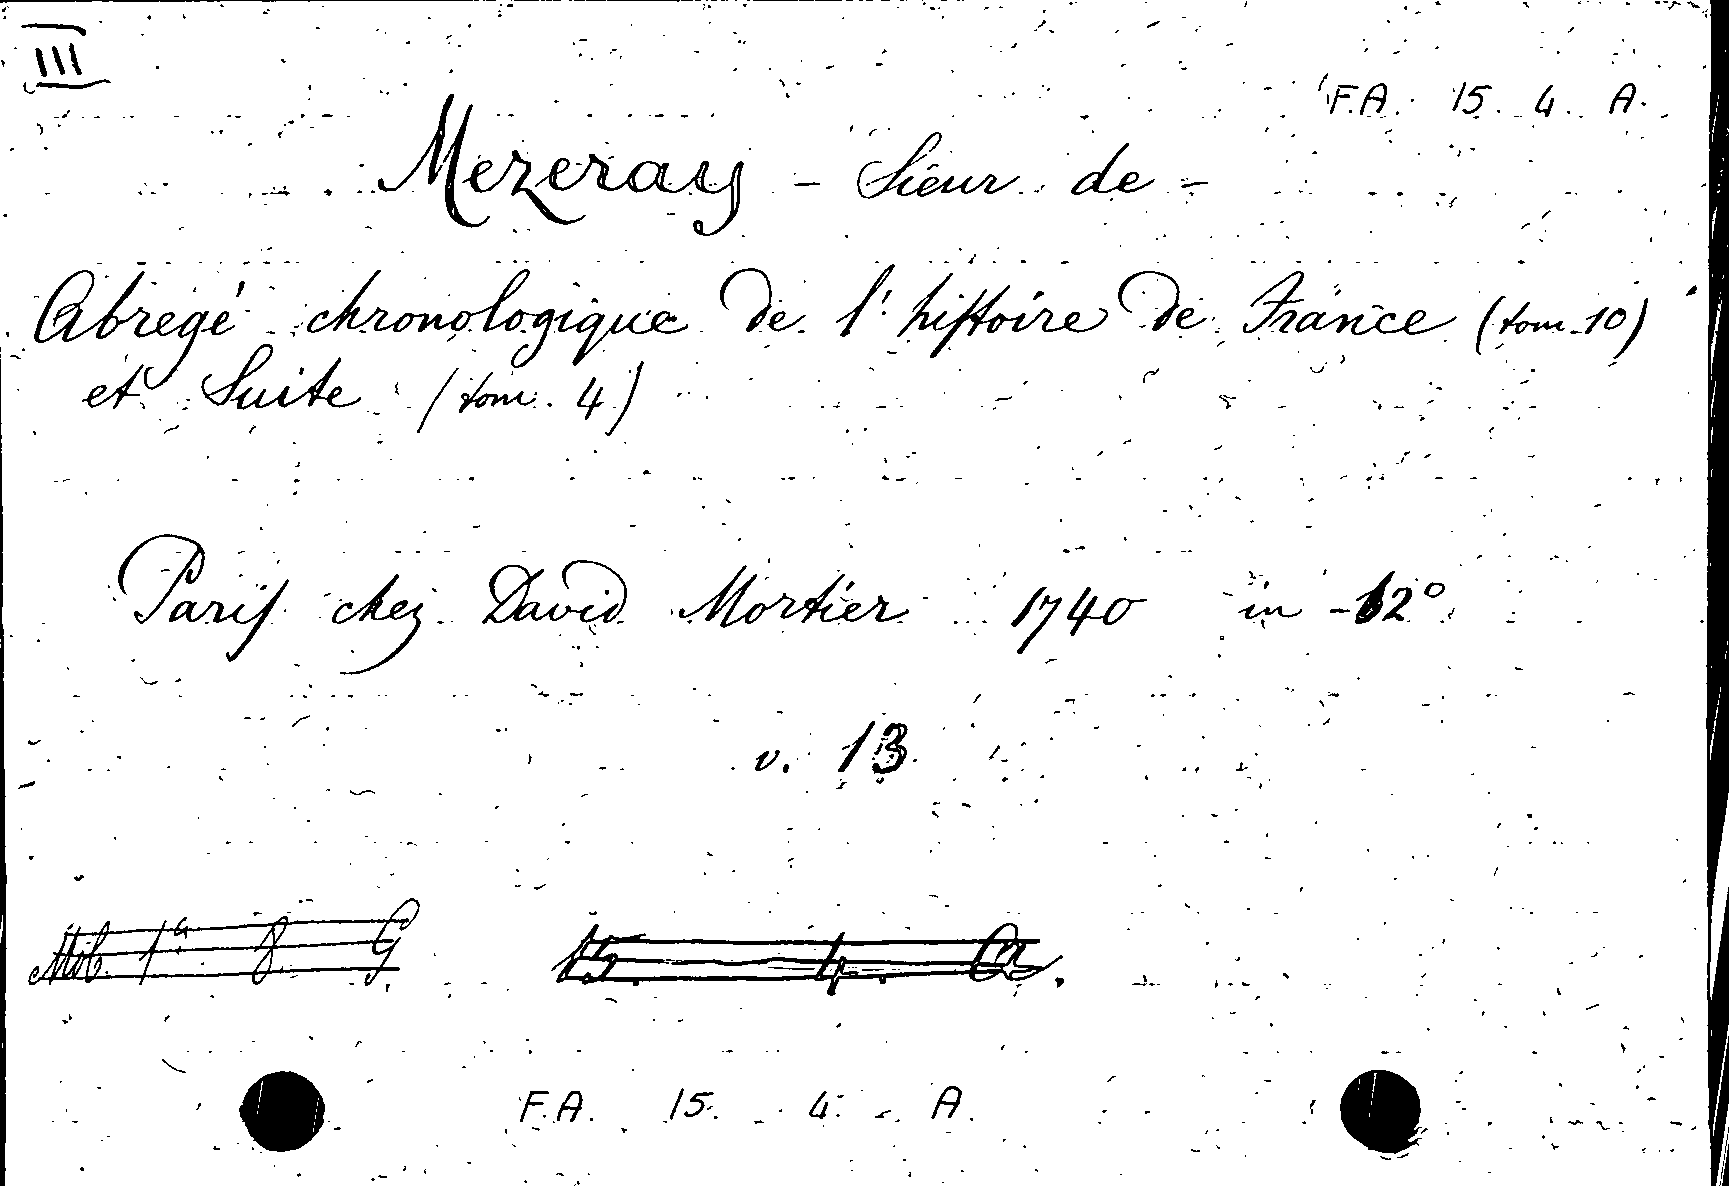 III
F.A. 15. 4. A.
Mezeray - Sieur de -
Abregé chronologique de l'histoire de France (tom. 10)
et Suite (tom. 4)
Paris chez David Mortier 1740 in-12°
v. 13
Mob. 1a 8. G.
15. 4. A.
F.A. 15. 4. A.